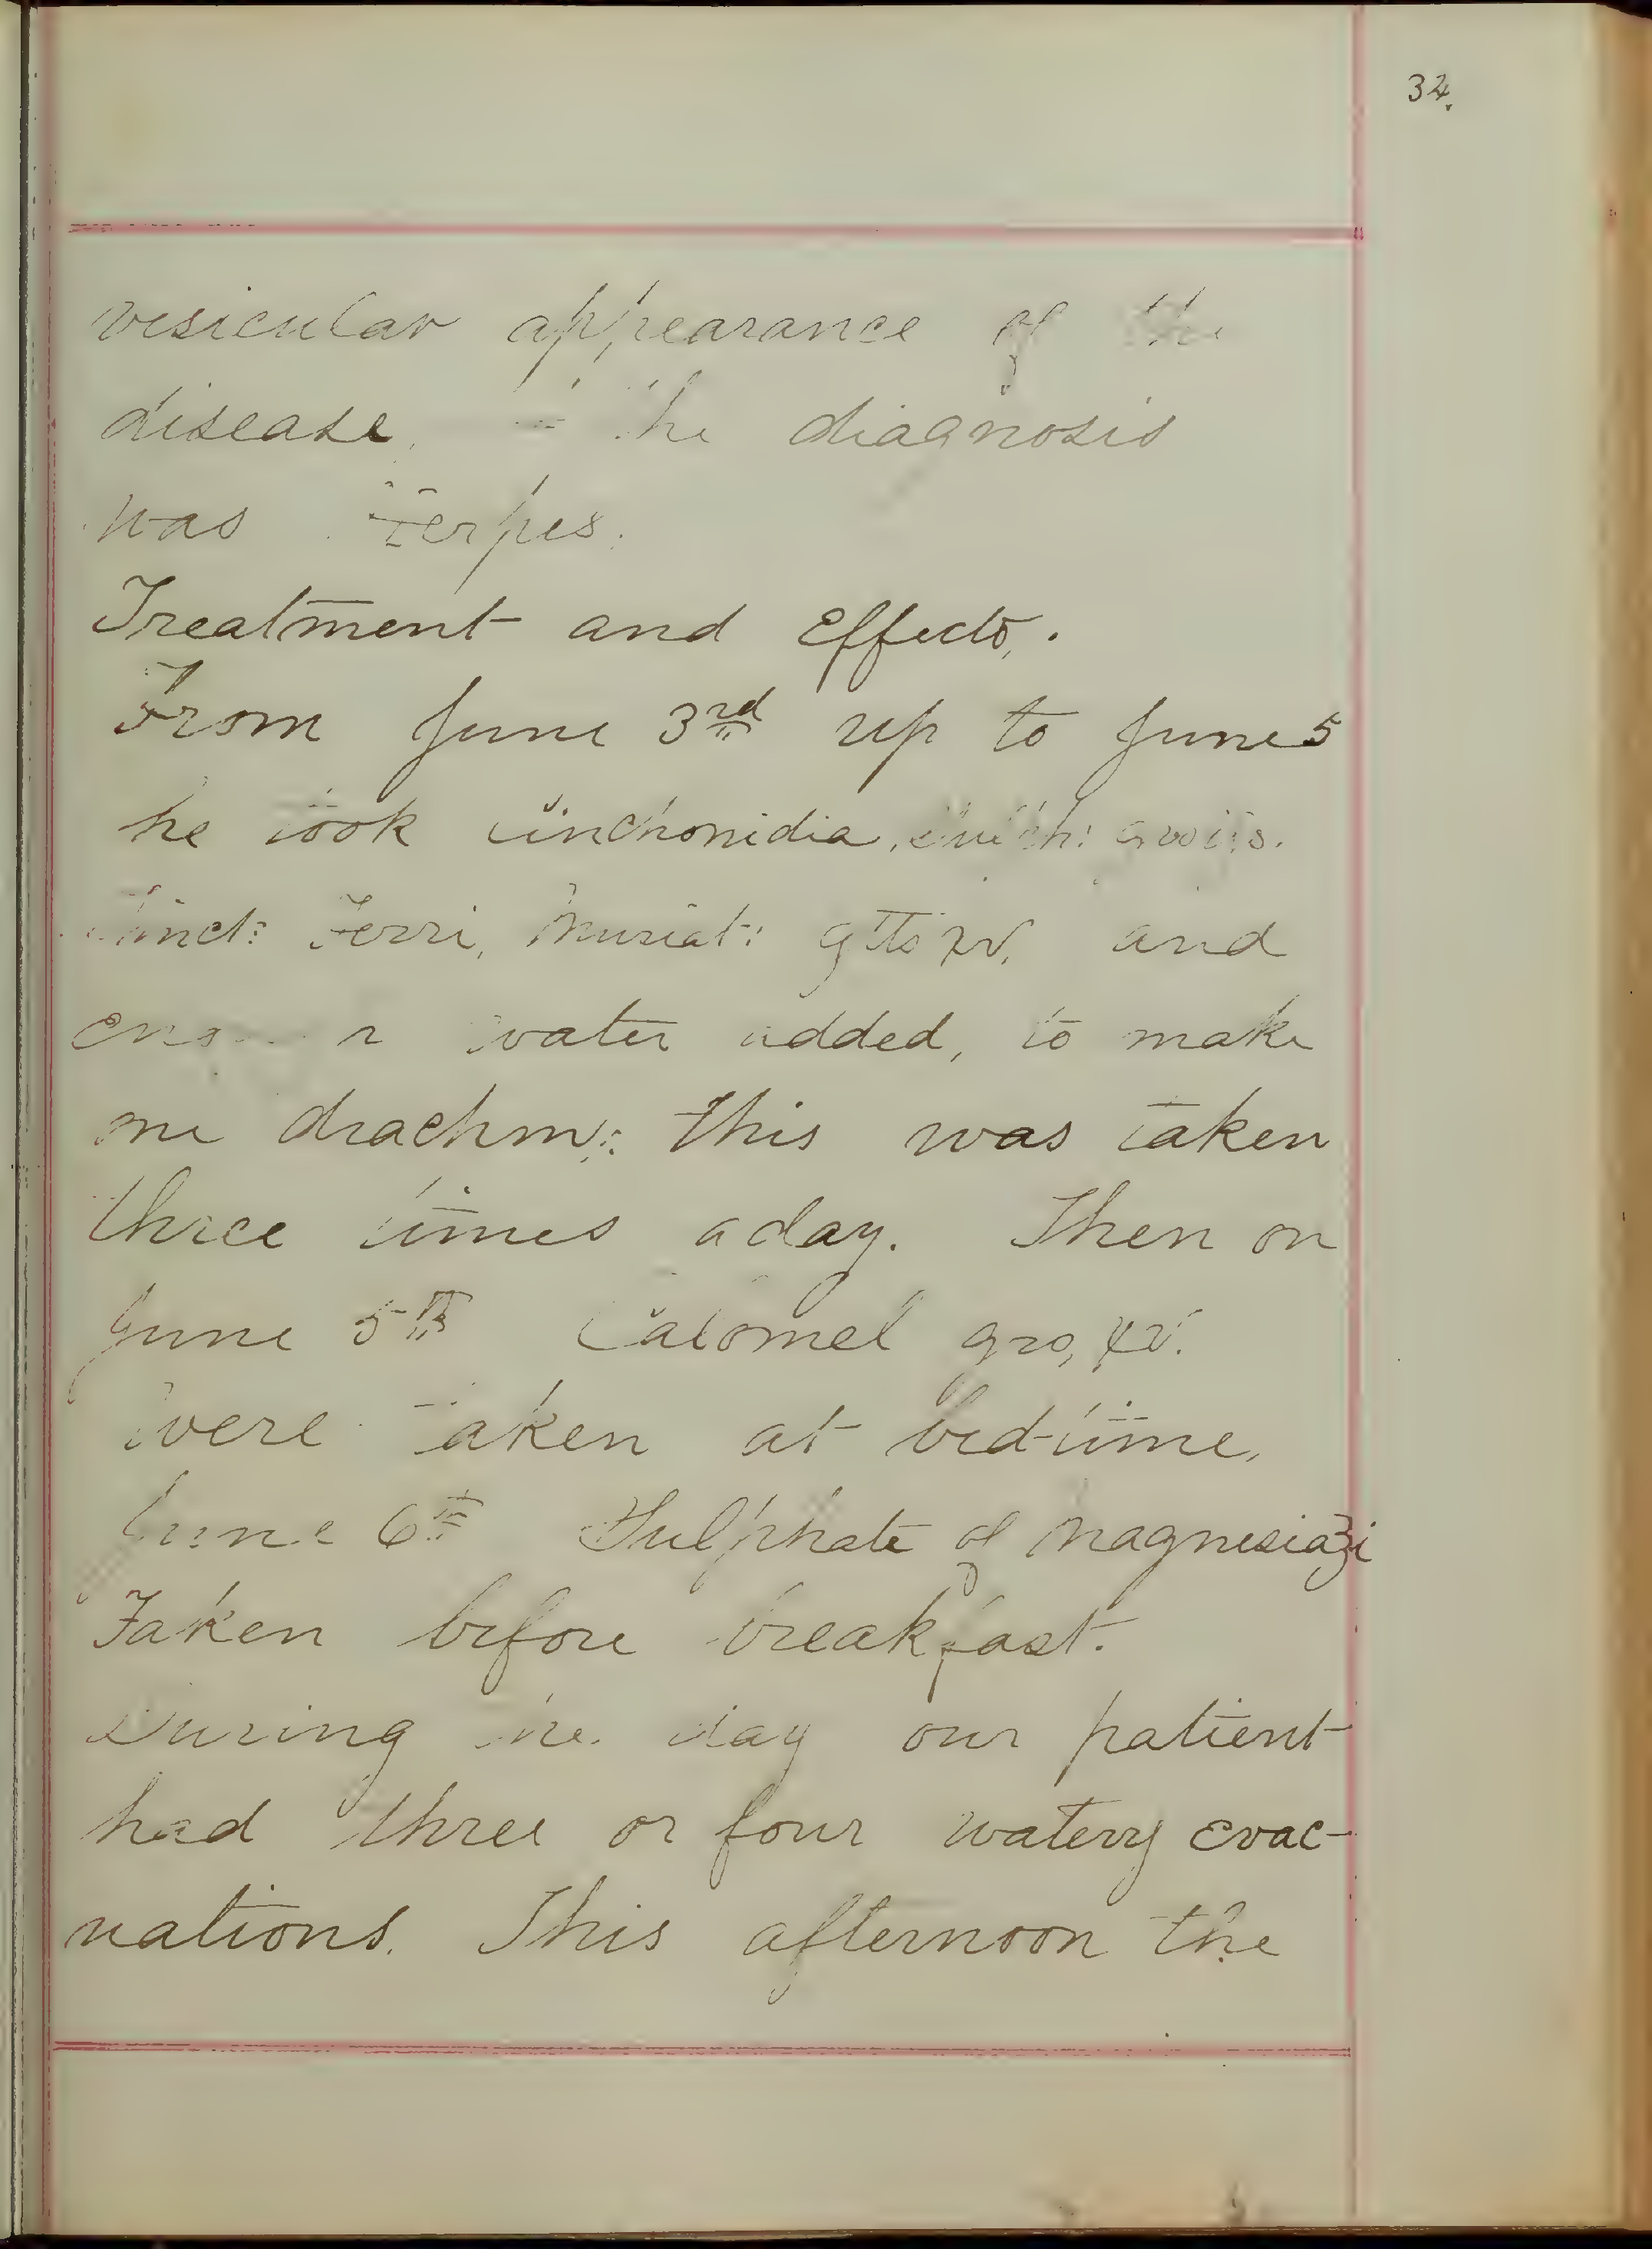 34.
vesicular appearance of the
disease. The diagnosis
was Herpes.
Treatment and Effects.
From June 3rd up to June 5
he took Cinchonidia, Sulph:
Tinct: Ferri, Muriat: gtts xv, and
enough water added, to make
one drachm: this was taken
three times a day. Then on
June 5th Calomel grs, xv.
were taken at bed-time.
June 6th Sulphate of Magnesia ℥i
Taken before breakfast.
During the day our patient
had three or four watery evac-
uations. This afternoon the